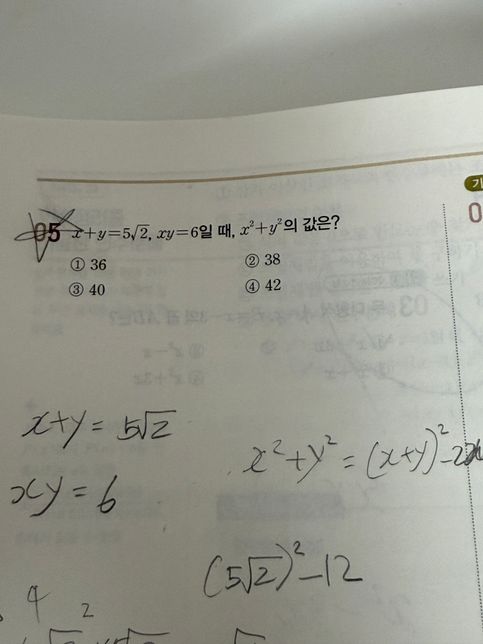 05 x+y=5√2, xy=6일 때, x²+y²의 값은?
① 36 ② 38
③ 40 ④ 42
x+y = 5√2
x²+y² = (x+y)²-2x
xy = 6
(5√2)²-12
4 2